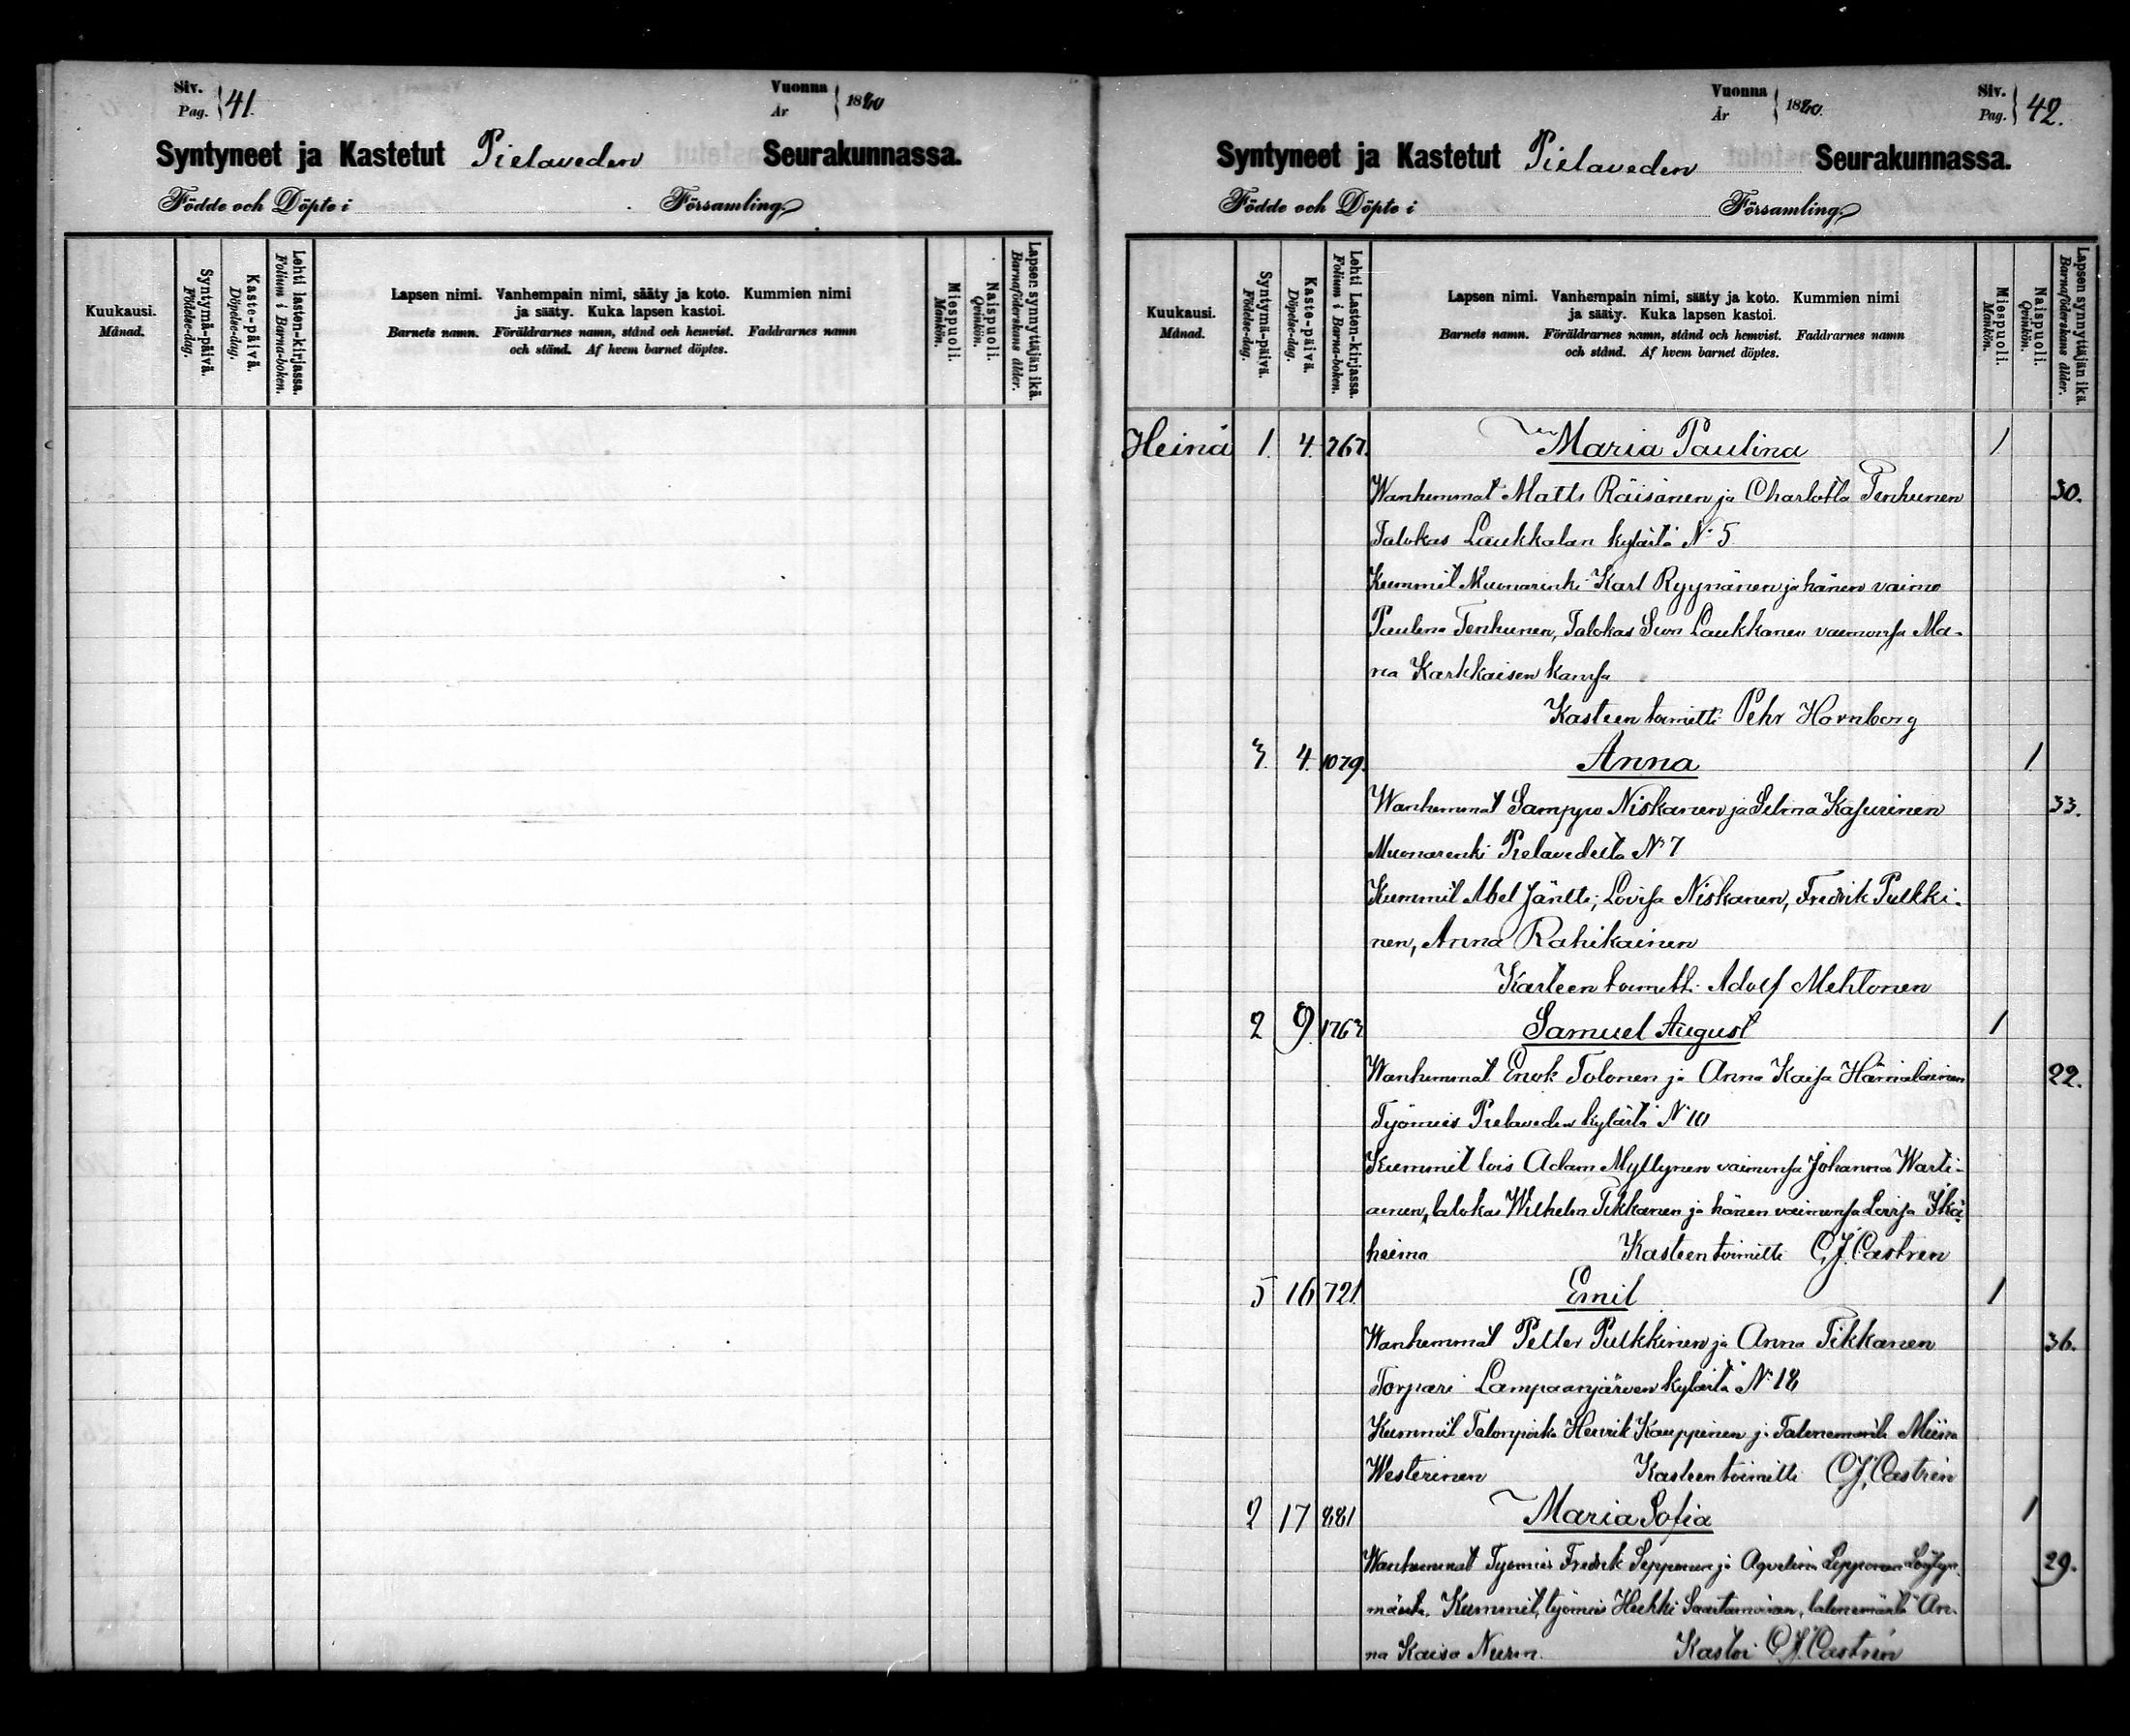 Siv. Pag. 41. Vuonna År 1880
Syntyneet ja Kastetut Pielaveden Seurakunnassa.
Födde och Döpte i Församling.
Kuukausi. Månad.
Syntymä-päivä. Födelse-dag.
Kaste-päivä. Döpelse-dag.
Lehti lasten-kirjassa. Folium i Barna-boken.
Lapsen nimi. Vanhempain nimi, sääty ja koto. Kummien nimi
ja sääty. Kuka lapsen kastoi.
Barnets namn. Föräldrarnes namn, stånd och hemvist. Faddrarnes namn
och stånd. Af hvem barnet döptes.
Miespuoli. Mankön.
Naispuoli. Qvinkön.
Lapsen synnyttäjän ikä. Barnaföderskans ålder.
Vuonna År 1880. Siv. Pag. 42.
Syntyneet ja Kastetut Pielaveden Seurakunnassa.
Födde och Döpte i Församling.
Kuukausi. Månad.
Syntymä-päivä. Födelse-dag.
Kaste-päivä. Döpelse-dag.
Lehti Lasten-kirjassa. Folium i Barna-boken.
Lapsen nimi. Vanhempain nimi, sääty ja koto. Kummien nimi
ja sääty. Kuka lapsen kastoi.
Barnets namn. Föräldrarnes namn, stånd och hemvist. Faddrarnes namn
och stånd. Af hvem barnet döptes.
Miespuoli. Mankön.
Naispuoli. Qvinkön.
Lapsen synnyttäjän ikä. Barnaföderskans ålder.
Heinä 1. 4. 767. Maria Paulina 1
Wanhemmat Matts Räisänen ja Charlotta Tenhunen 30.
Talokas Laukkalan kylästä N:5
Kummit Muonarenki Karl Ryynänen ja hänen vaimo
Paulina Tenhunen, Talokas Simon Laukkanen vaimonsa Ma-
ria Karkkaisen kanssa
Kasteen toimitti Pehr Hornborg
3. 4. 1079. Anna 1.
Wanhemmat Samppo Niskanen ja Selma Kasurinen 33.
Muonarenki Pielavedeltä N:7
Kummit Abel Jäntti, Lovisa Niskanen, Fredrik Pulkki-
nen, Anna Rahikainen
Kasteen toimitti Adolf Mehtonen
2 9. 1763 Samuel August 1
Wanhemmat Enok Tolonen ja Anna Kaisa Hämäläinen 22.
Työmies Pielaveden kylästä N:10
Kummit lois Adam Myllynen vaimonsa Johanna Warti-
ainen, talokas Wilhelm Tikkanen ja hänen vaimonsa Lovisa Ikä-
heimo Kasteen toimitti C. J. Castren
5 16 721. Emil 1
Wanhemmat Petter Pulkkinen ja Anna Tikkanen 36.
Torpari Lampaanjärven kylästä N:18
Kummit Talonpoika Henrik Kauppinen ja Talonemäntä Miina
Westerinen Kasteen toimitti C. J. Castrén
2 17 881 Maria Sofia 1
Wanhemmat Työmies Fredrik Sepponen ja Agvelina Lepponen 29.
Kummit, työmies Heikki Saastamoinen, talonemäntä An-
na Kaisa Kastoi C. J. Castrén